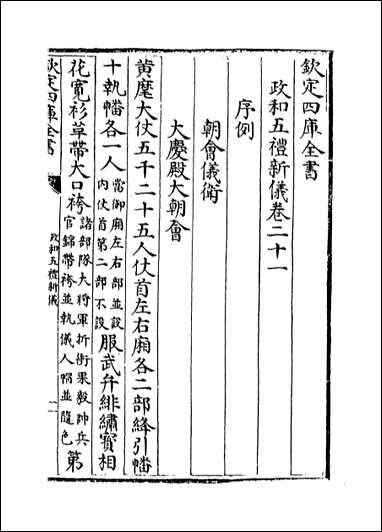 欽定四庫全書
政和五禮新儀卷二十一
序例
朝會儀衛
大慶殿大朝會
黄麾大仗五千二十五人仗首左右廂各二部絳引幡
十執幡各一人當御廂左右部並設
内仗首第二部不設服武弁緋繡寳相
花寛衫革帶大口袴諸部隊大將軍折衝果毅帥兵
官錦帶袴並執儀人帽並隨色第
欽定四庫全書
政和五禮新儀
一